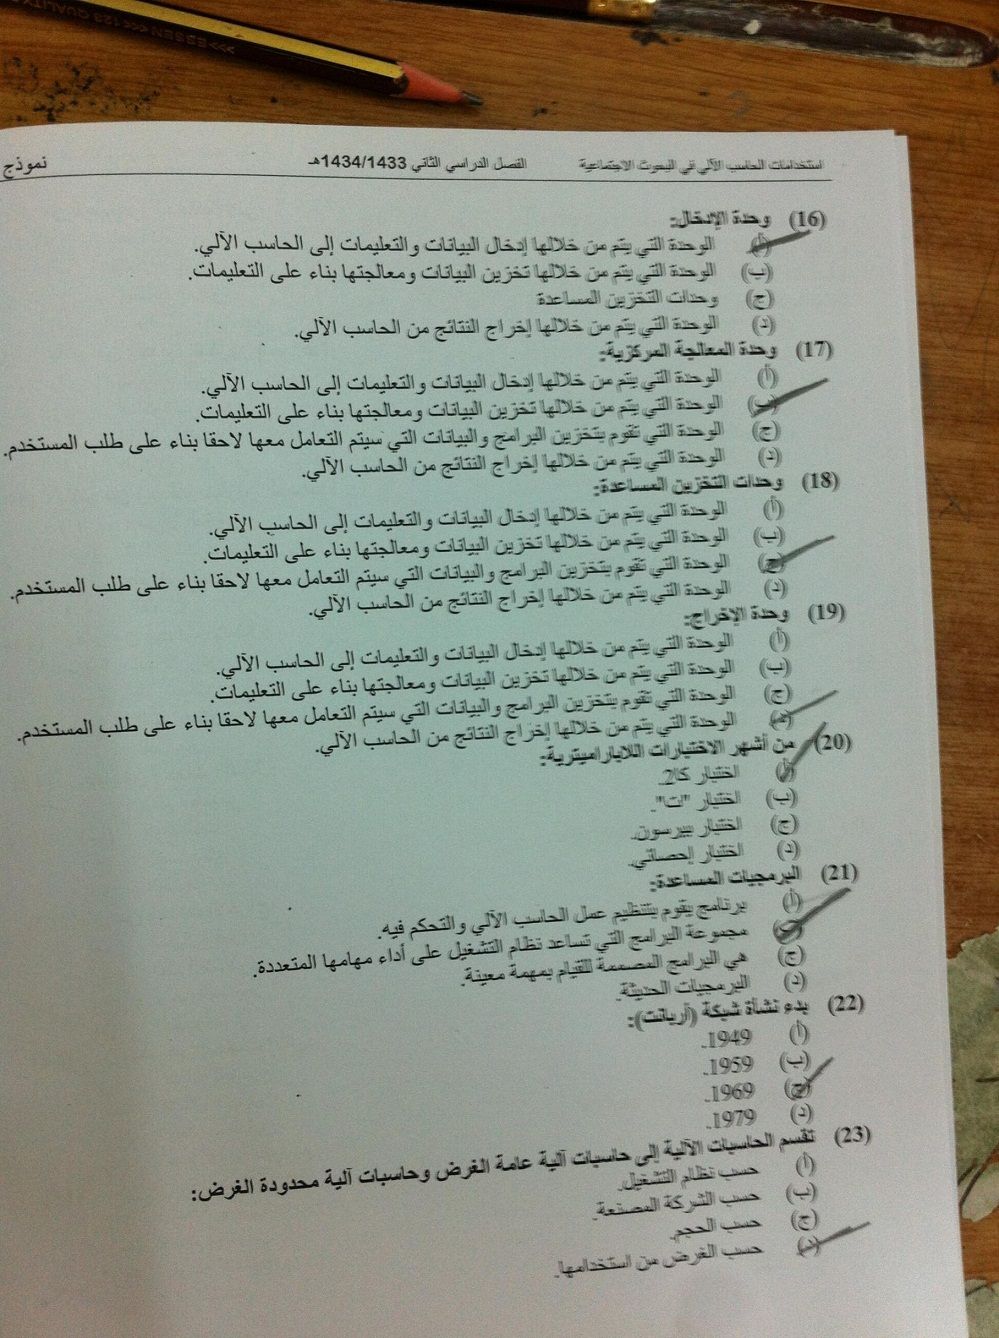 ESSEN <<< 123 QUALITY
استخدامات الحاسب الآلي في البحوث الاجتماعية الفصل الدراسي الثاني 1434/1433هـ نموذج
(16) وحدة الإدخال:
(أ) الوحدة التي يتم من خلالها إدخال البيانات والتعليمات إلى الحاسب الآلي.
(ب) الوحدة التي يتم من خلالها تخزين البيانات ومعالجتها بناء على التعليمات.
(ج) وحدات التخزين المساعدة
(د) الوحدة التي يتم من خلالها إخراج النتائج من الحاسب الآلي.
(17) وحدة المعالجة المركزية:
(أ) الوحدة التي يتم من خلالها إدخال البيانات والتعليمات إلى الحاسب الآلي.
(ب) الوحدة التي يتم من خلالها تخزين البيانات ومعالجتها بناء على التعليمات.
(ج) الوحدة التي تقوم بتخزين البرامج والبيانات التي سيتم التعامل معها لاحقا بناء على طلب المستخدم.
(د) الوحدة التي يتم من خلالها إخراج النتائج من الحاسب الآلي.
(18) وحدات التخزين المساعدة:
(أ) الوحدة التي يتم من خلالها إدخال البيانات والتعليمات إلى الحاسب الآلي.
(ب) الوحدة التي يتم من خلالها تخزين البيانات ومعالجتها بناء على التعليمات.
(ج) الوحدة التي تقوم بتخزين البرامج والبيانات التي سيتم التعامل معها لاحقا بناء على طلب المستخدم.
(د) الوحدة التي يتم من خلالها إخراج النتائج من الحاسب الآلي.
(19) وحدة الإخراج:
(أ) الوحدة التي يتم من خلالها إدخال البيانات والتعليمات إلى الحاسب الآلي.
(ب) الوحدة التي يتم من خلالها تخزين البيانات ومعالجتها بناء على التعليمات.
(ج) الوحدة التي تقوم بتخزين البرامج والبيانات التي سيتم التعامل معها لاحقا بناء على طلب المستخدم.
(د) الوحدة التي يتم من خلالها إخراج النتائج من الحاسب الآلي.
(20) من أشهر الاختبارات اللابارامیترية:
(أ) اختبار كا2.
(ب) اختبار "ت".
(ج) اختبار بيرسون.
(د) اختبار إحصائي.
(21) البرمجيات المساعدة:
(أ) برنامج يقوم بتنظيم عمل الحاسب الآلي والتحكم فيه.
(ب) مجموعة البرامج التي تساعد نظام التشغيل على أداء مهامها المتعددة.
(ج) هي البرامج المصممة للقيام بمهمة معينة.
(د) البرمجيات الحديثة.
(22) بدء نشأة شبكة (أربانت):
(أ) 1949.
(ب) 1959.
(ج) 1969.
(د) 1979.
(23) تقسم الحاسبات الآلية إلى حاسبات آلية عامة الغرض وحاسبات آلية محدودة الغرض:
(أ) حسب نظام التشغيل.
(ب) حسب الشركة المصنعة.
(ج) حسب الحجم.
(د) حسب الغرض من استخدامها.